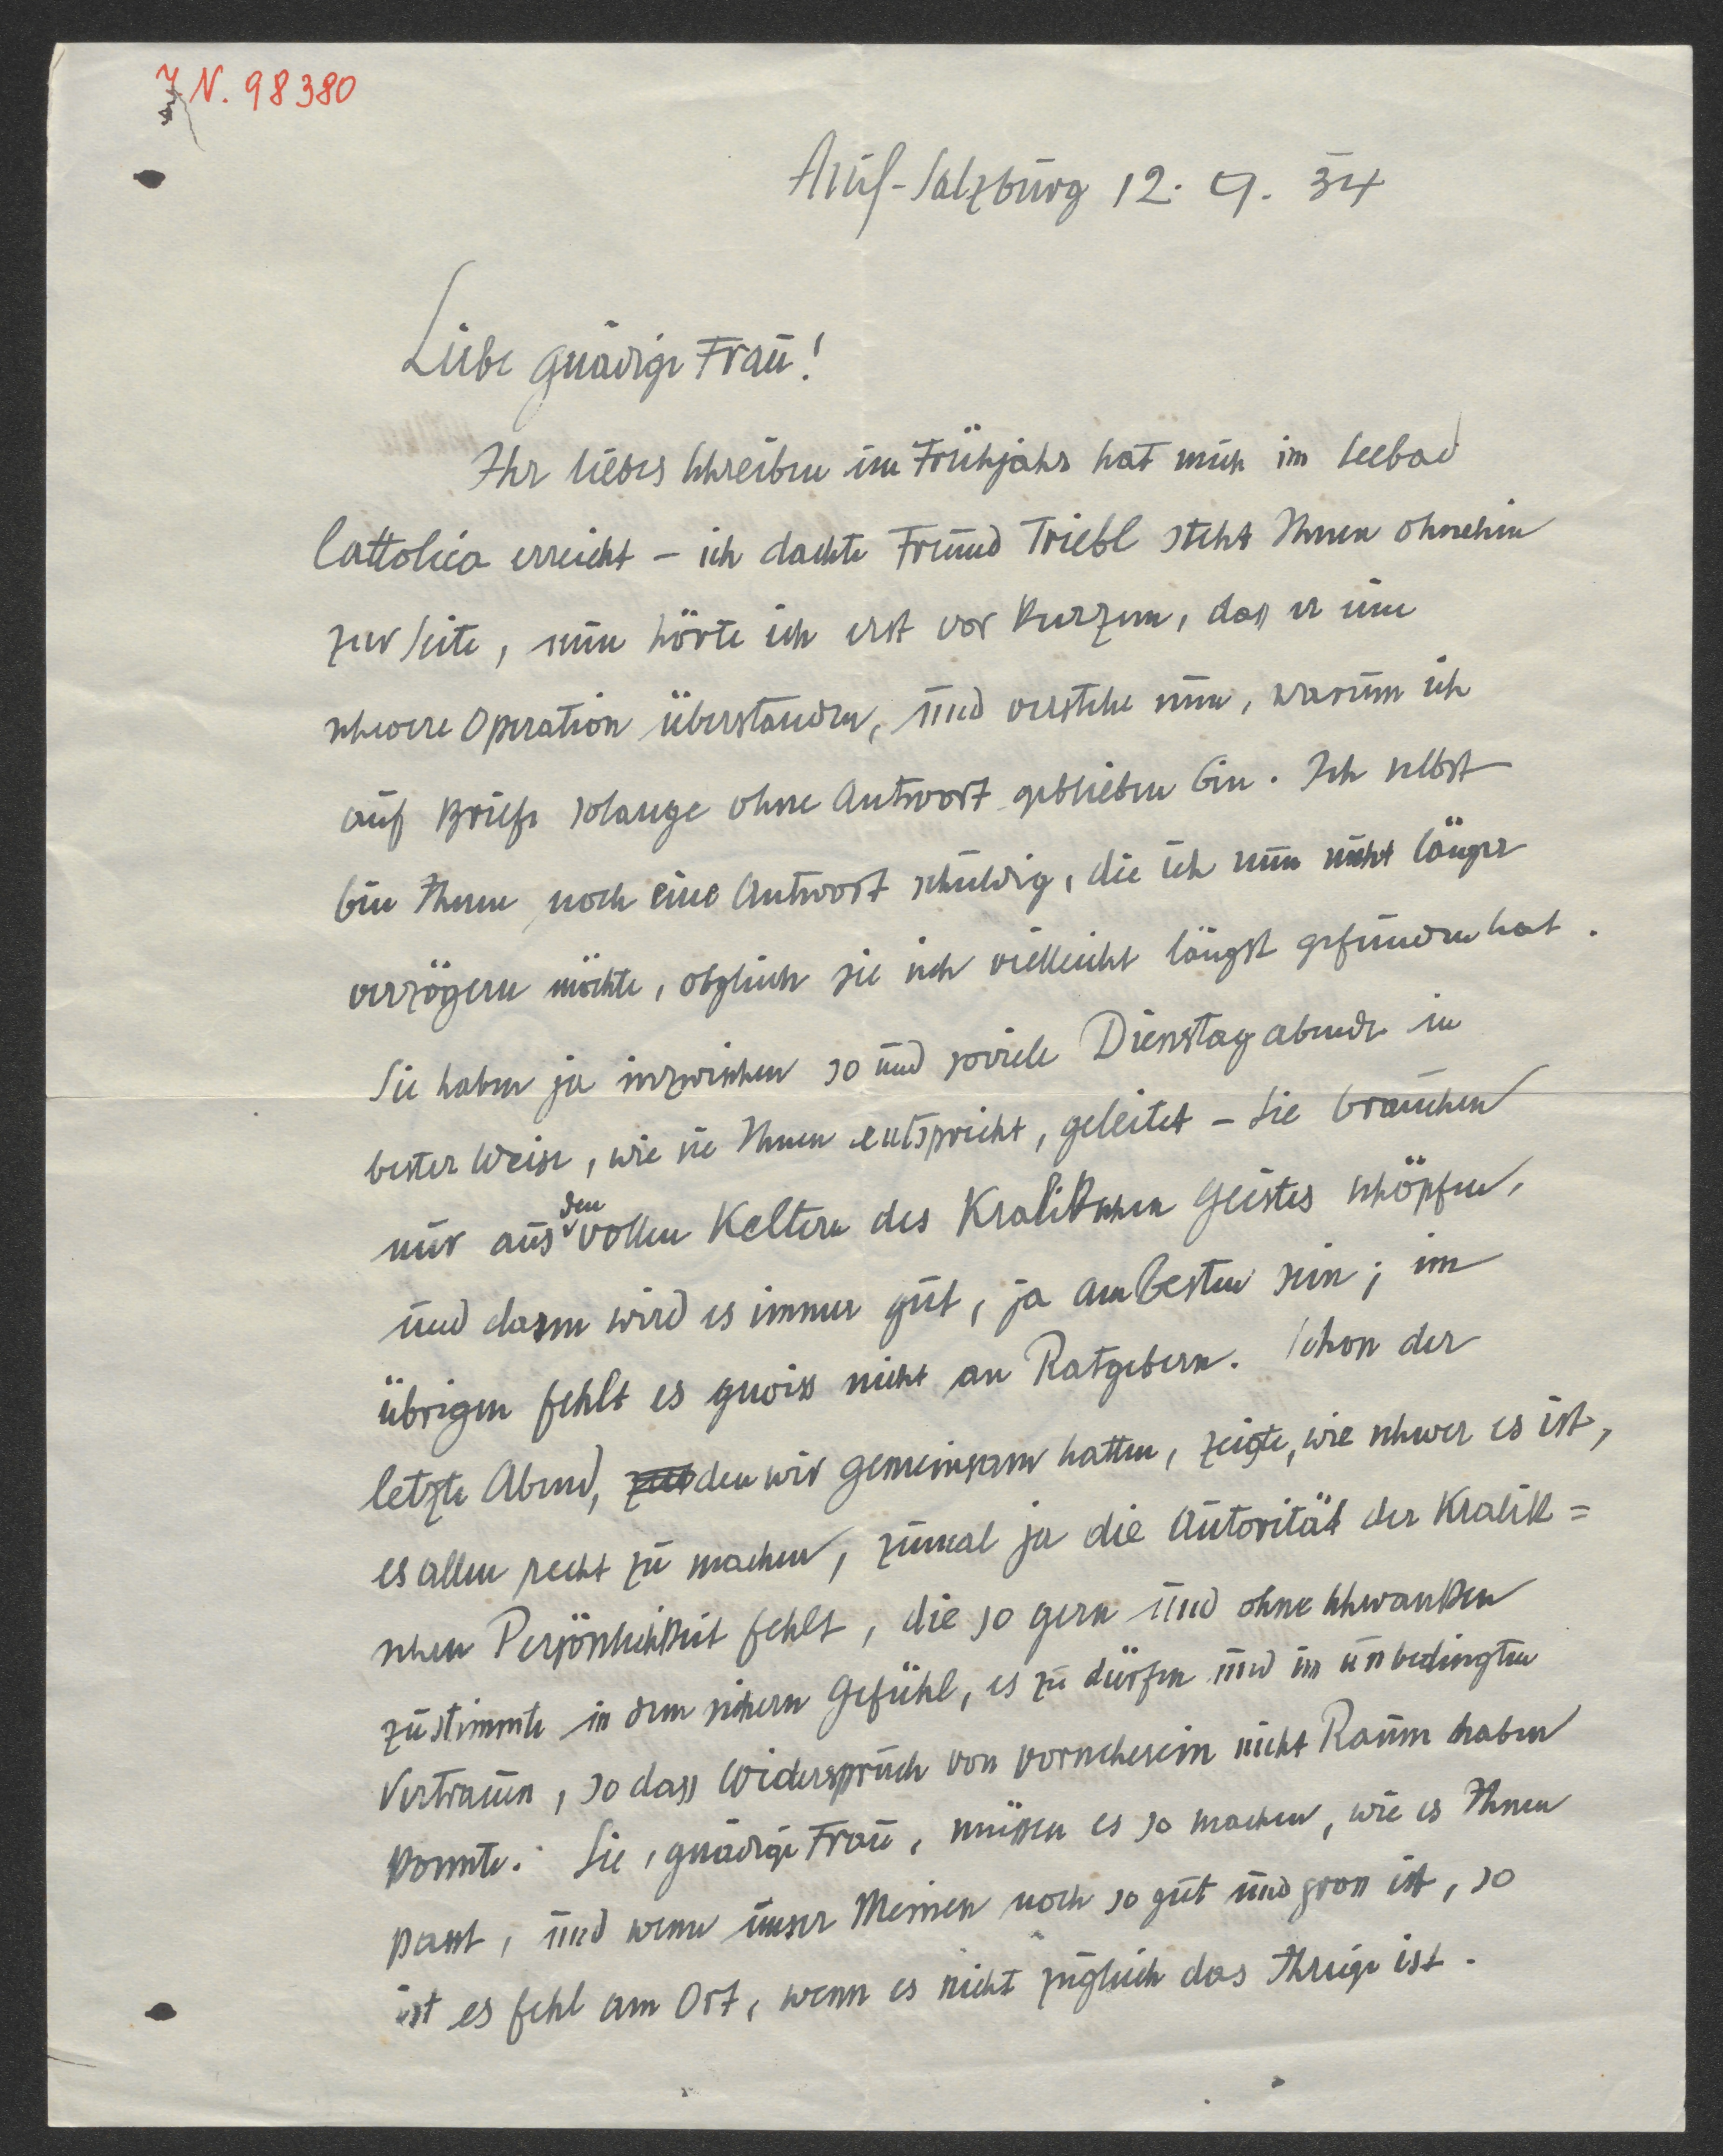 J N. 98380
Anif-Salzburg 12. 9. 34
Liebe gnädige Frau!
Ihr liebes Schreiben im Frühjahr hat mich im Seebad
Cattolica erreicht – ich dachte Freund Triebl steht Ihnen ohnehin
zur Seite, nun hörte ich erst vor kurzem, dass er eine
schwere Operation überstanden, und verstehe nun, warum ich
auf Briefe solange ohne Antwort geblieben bin. Ich selbst
bin Ihnen noch eine Antwort schuldig, die ich nun nicht länger
verzögern möchte, obgleich sie sich vielleicht längst gefunden hat.
Sie haben ja inzwischen so und soviele Dienstagabende in
bester Weise, wie sie Ihnen entspricht, geleitet – Sie brauchen
nur aus den vollen Keltern des Kralikschen Geistes schöpfen,
und dann wird es immer gut, ja am besten sein; im
übrigen fehlt es gewiss nicht an Ratgebern. Schon der
letzte Abend, den wir gemeinsam hatten, zeigte, wie schwer es ist,
es allen recht zu machen, zumal ja die Autorität der Kralik=
schen Persönlichkeit fehlt, die so gern und ohne Schwanken
zustimmte in dem sichern Gefühl, es zu dürfen und im unbedingten
Vertrauen, so dass Widerspruch von vorneherein nicht Raum haben
konnte. Sie, gnädige Frau, müssen es so machen, wie es Ihnen
passt, und wenn unser Meinen noch so gut und gross ist, so
ist es fehl am Ort, wenn es nicht zugleich das Ihrige ist.